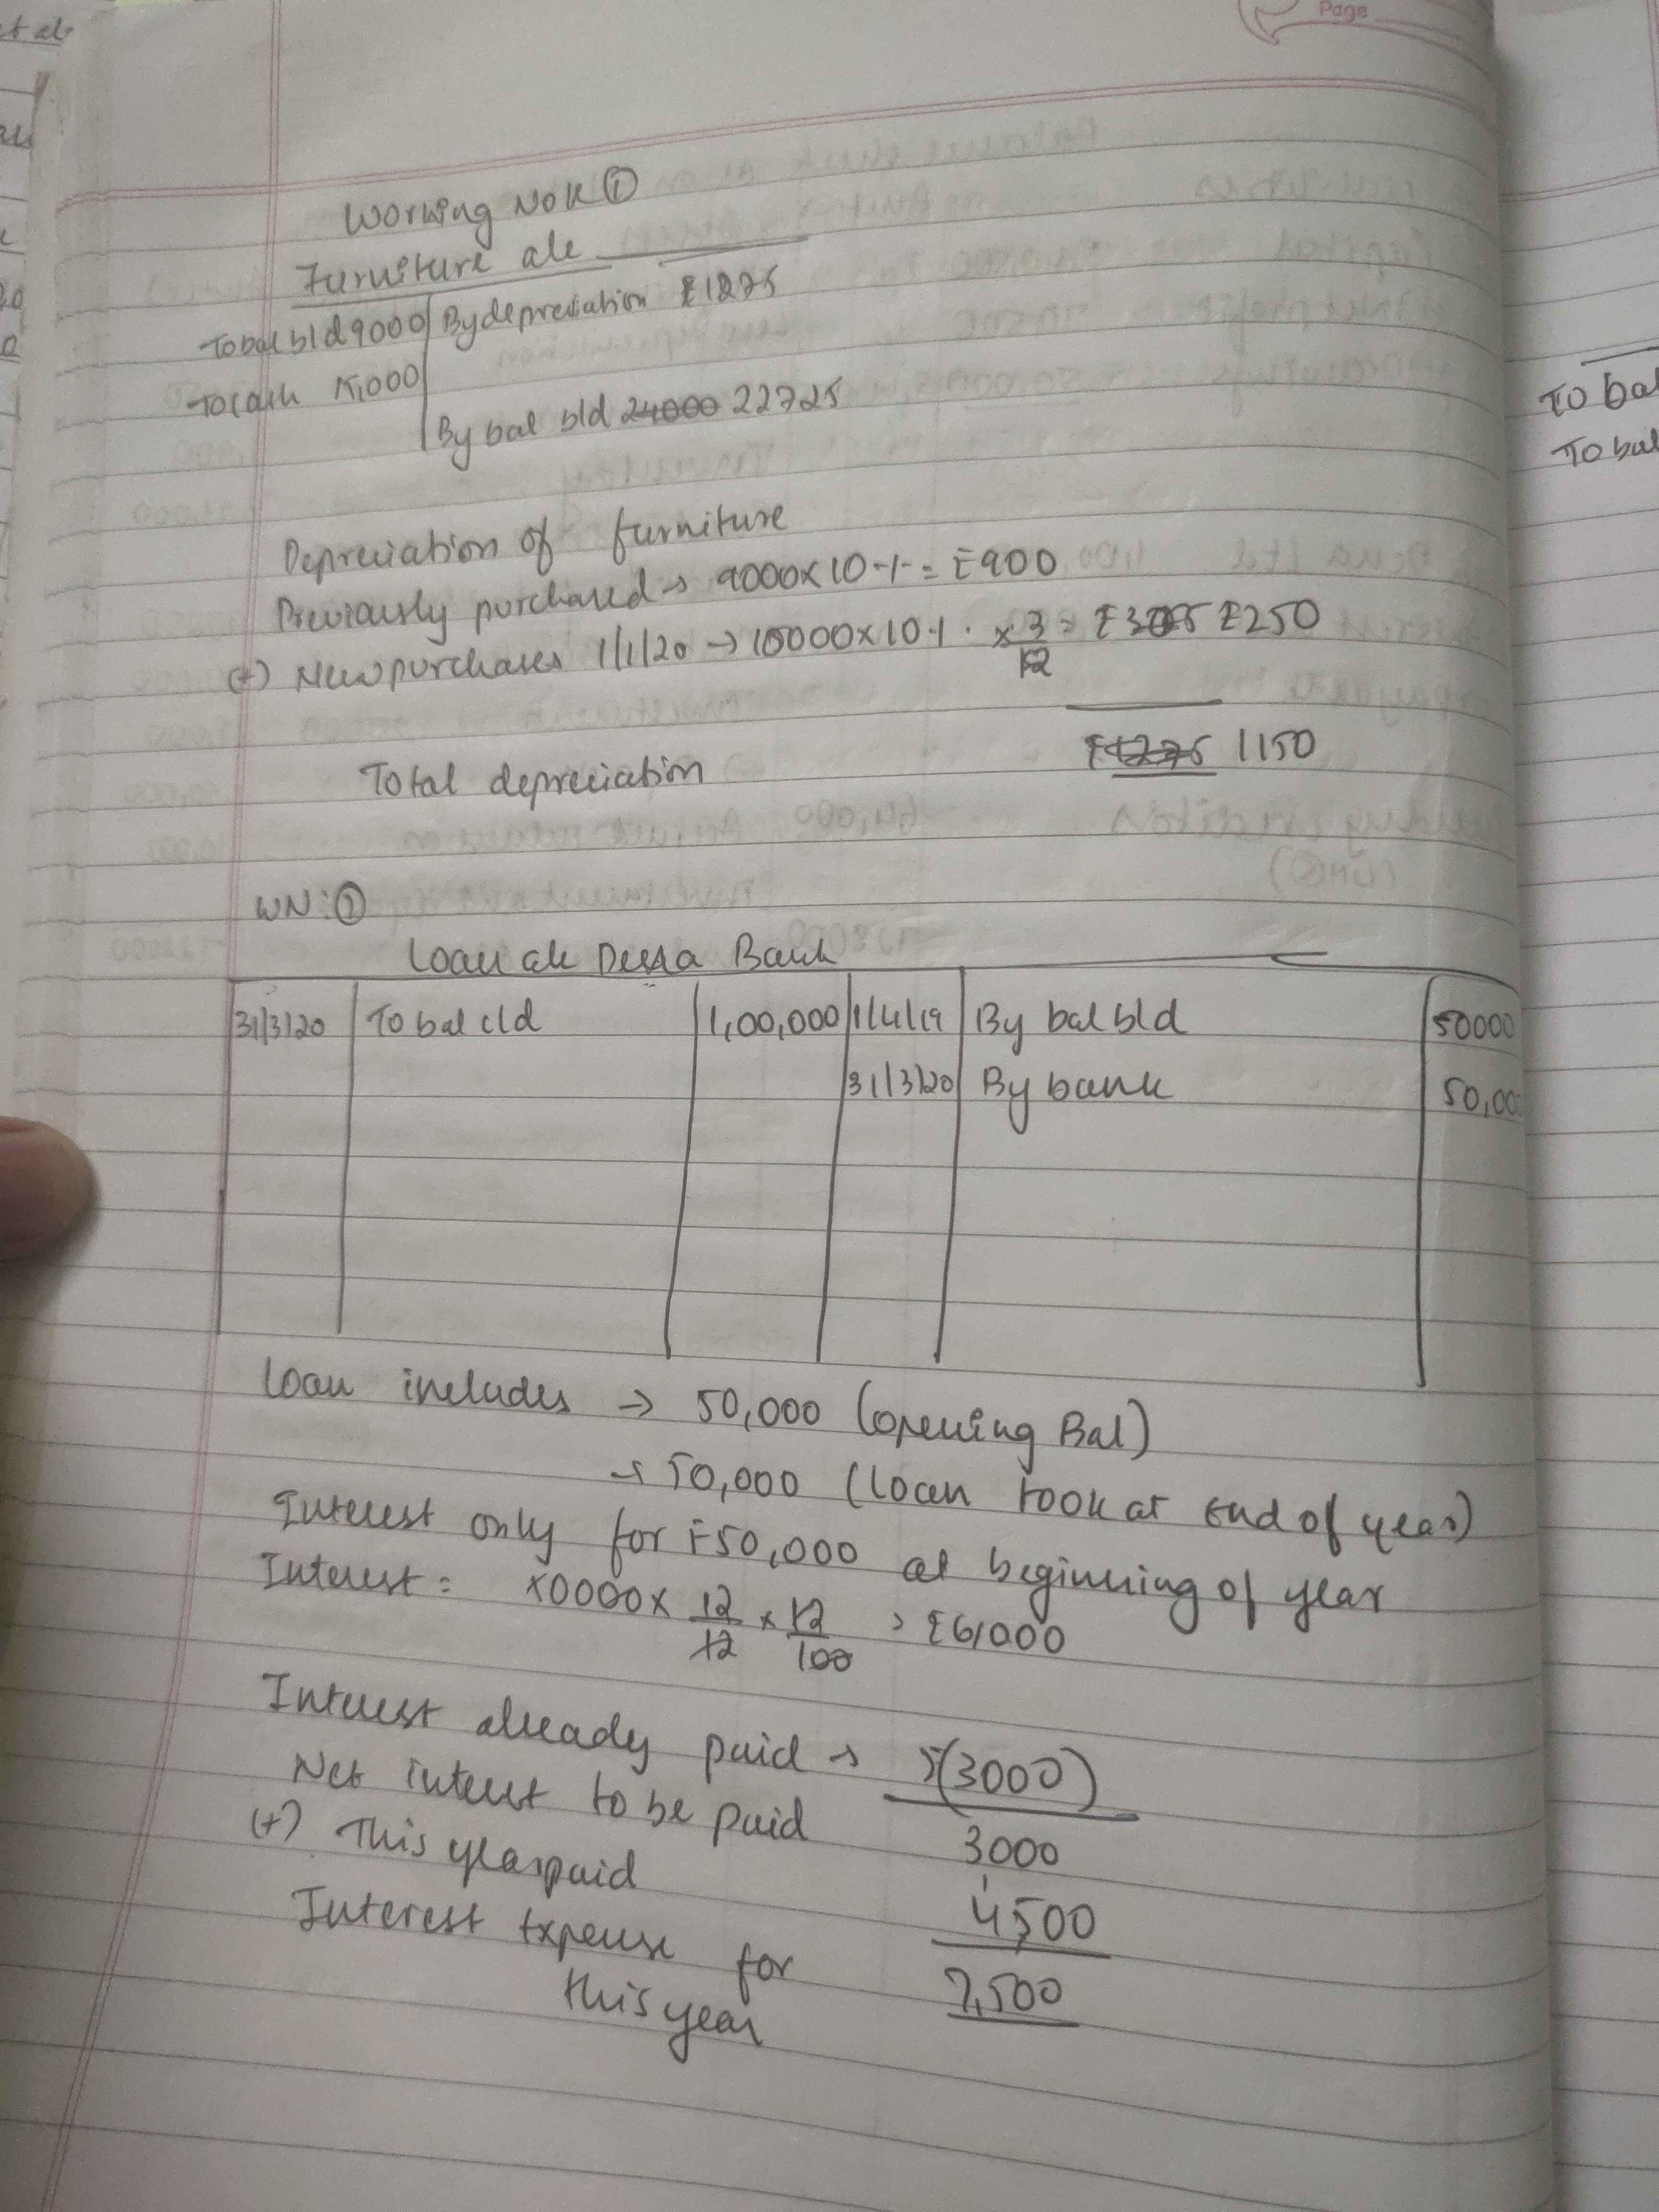 Page
Working Note ①
Furniture a/c
To bal b/d 9000 By depreciation ₹1275
To cash 15,000
By bal b/d 24000 22725
Depreciation of furniture
Previously purchased → 9000 × 10 % = ₹900
(+) New purchases 1/1/20 → 10000 × 10 % × 3/12 = ₹250
Total depreciation ₹1275 1150
WN: ②
Loan a/c Dena Bank
31/3/20 To bal c/d 1,00,000 1/4/19 By bal b/d 50000
31/3/20 By bank 50,000
Loan includes → 50,000 (opening Bal)
→ 50,000 (loan took at end of year)
Interest only for ₹50,000 at beginning of year
Interest = 50000 × 12/12 × 12/100 = ₹6,000
Interest already paid → (3000)
Net interest to be paid 3000
(+) This year paid 4,500
Interest Expense for 7,500
this year
To bal
To bal